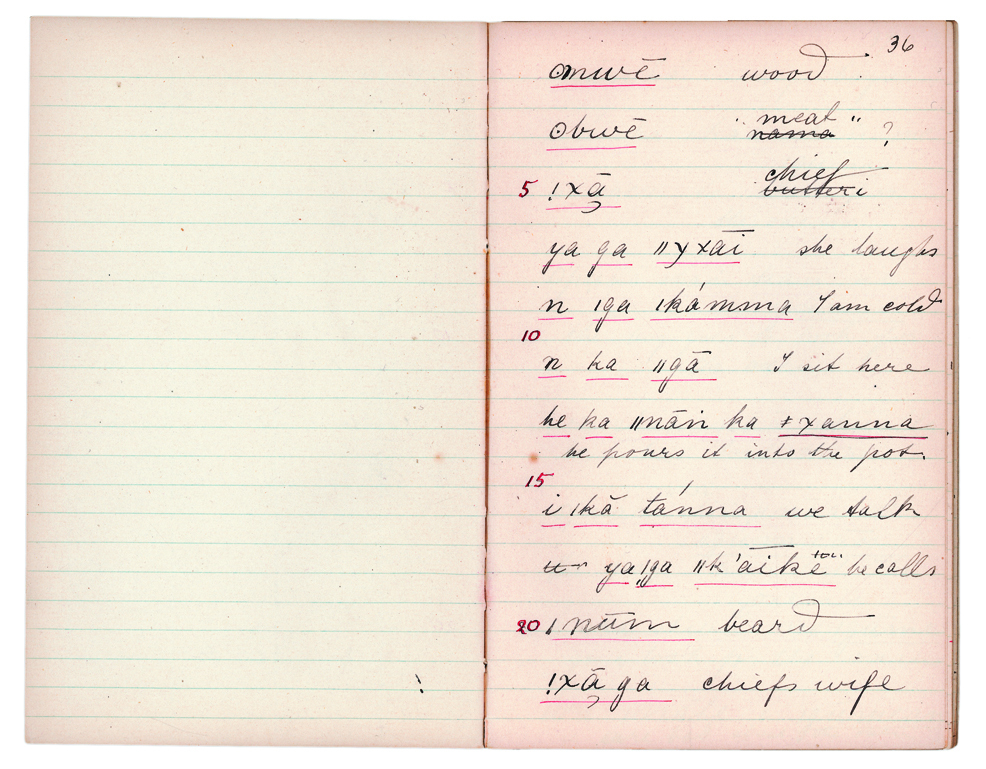 36
omwē wood
obwē "meat" nama ?
5 !xā chief
ya ga ǁyxāi she laughs
n ǀga ǀkámma I am cold
10
n ka ǁgā I sit here
he ka ǁnāń ka ǂxanna
he pours it into the pot.
15
i ǀkā tánna we talk
ya ǀga ǁk'āikē he calls
20 ǀnūm beard
!xā ga chiefs wife